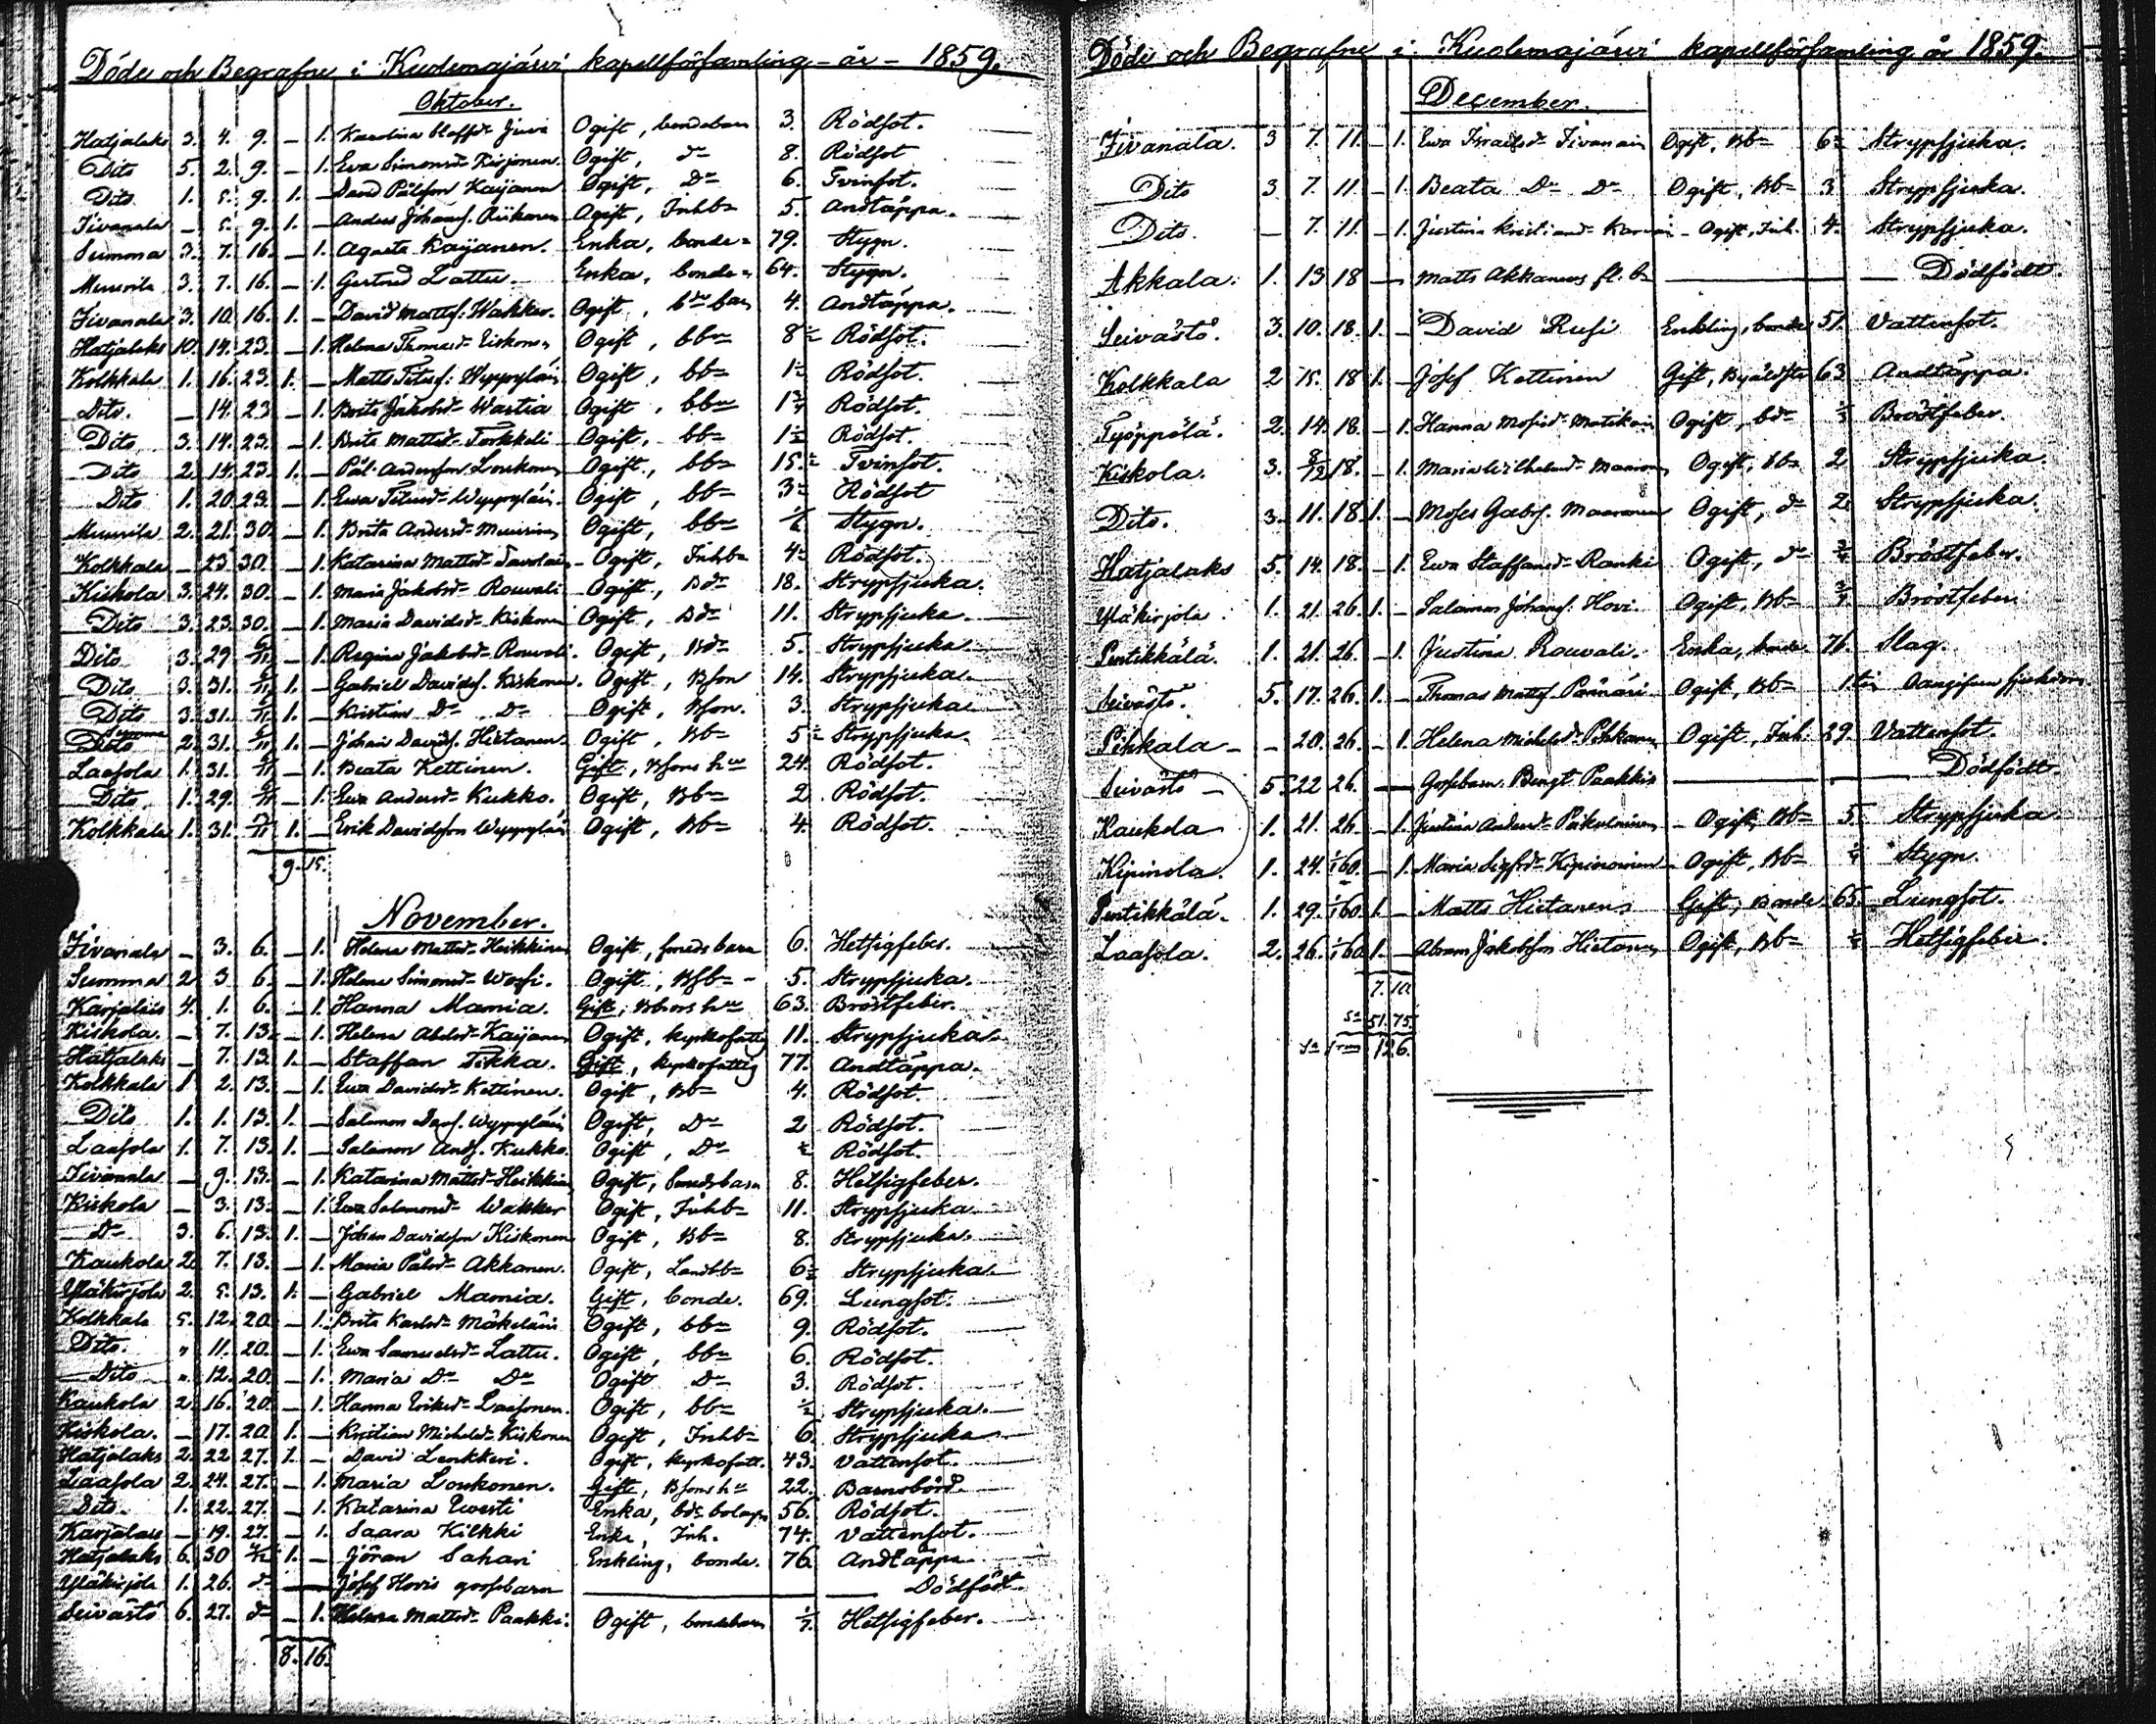 Döde och Begrafne i Kuolemajärvi kapellförsamling - år - 1859.
Oktober.
Hatjalaks 3. 4. 9. — 1. Karolina Staffsdr Juvi Ogift, bondebarn 3. Rödsot.
Dito 5. 2. 9. — 1. Eva Simonsdr Kirjonen Ogift, do 8. Rödsot
Dito 1. 5. 9. 1. — David Pålsson Kaijanen Ogift, Do 6. Tvinsot.
Iivanala — 5. 9. 1. — Anders Johans. Riikonen Ogift, Inhb= 5. Andtäppa.
Summa 3. 7. 16. — 1. Agneta Kaijanen. Enka, bonde= 79. Stygn.
Muurila 3. 7. 16. — 1. Gertrud Lattu. Enka, bonde= 64. Stygn.
Iivanala 3. 10. 16. 1. — David Mattss. Wakker. Ogift, bdebarn 4. Andtäppa.
Hatjalaks 10. 14. 23. — 1. Helena Thomasdr Eiskonen Ogift, bb= 8½ Rödsot.
Kolkkala 1. 16. 23. 1. — Matts Peters: Wyppyläin Ogift, bb= 1½ Rödsot.
Dito. — 14. 23 — 1. Brita Jakobsdr Wastia Ogift, bb= 1¾ Rödsot.
Dito 3. 14. 23. — 1. Brita Mattsdr Torkkeli Ogift, bb= 1½ Rödsot.
Dito 2. 14. 23. 1. — Pål Andersson Loukonen Ogift, bb= 15½ Tvinsot.
Dito 1. 20. 23. — 1. Ewa Petersdr Wyppyläin. Ogift, bb= 3½ Rödsot
Muurila 2. 21. 30. — 1. Brita Andersdr Muurinen Ogift, bb= Stygn.
Kolkkala — 23. 30. — 1. Katarina Mattsdr Ogift, Inhb= 4½ Rödsot.
Kiskola 3. 24. 30. — 1. Maria Jakobsdr Rouvali Ogift, Bdr 18. Strypsjuka.
Dito 3. 23. 30. — 1. Maria Davidsdr Kiskonen Ogift, Bdr 11. Strypsjuka.
Dito 3. 29 6/11 — 1. Regina Jakobsdr Rouvali. Ogift, Bdr 5. Strypsjuka.
Dito 3. 31. 6/11 1. — Gabriel Davids. Kiskonen. Ogift, Bson 14. Strypsjuka.
Dito 3. 31. 6/11 1. — Kristian Do Do Ogift, Bson. 3. Strypsjuka
Summa
Dito 2. 31. 6/11 1. — Johan Davids. Hietanen. Ogift, Bb= 5½ Strypsjuka
Laasola 1. 31. 6/11 — 1. Beata Kettinen. Gift, Bsons hu 24. Rödsot.
Dito. 1. 29. 6/11 — 1. Ewa Andersdr Kukko. Ogift, Bb= 2. Rödsot.
Kolkkala 1. 31. 1. — Erik Davidsson Wyppyläin Ogift, Bb= 4. Rödsot.
9. 15.
November.
Iivanala — 3. 6. — 1. Helena Mattsdr Heikkinen Ogift, smedsbarn 6. Hetsigfeber.
Summa 2 3 6. — 1. Helena Simonsdr Ogift, 5. Strypsjuka.
Karjalais 4. 1. 6. — 1. Hanna Mamia. Gift, hu 63. Bröstfeber.
Kiskola. — 7. 13. — 1. Helena Abelsdr Kaijanen Ogift, kyrkofattig 11. Strypsjuka
Hatjalaks — 7. 13. 1. — Staffan Tikka. Gift, kyrkofattig 77. Andtäppa.
Kolkkala 1 2. 13. — 1. Ewa Davidsdr Kettinen. Ogift, Bb= 4. Rödsot.
Dito 1. 1. 13. 1. — Salomon Davs. Wyppyläin Ogift, Do 2 Rödsot.
Laasola 1. 7. 13. 1. — Salomon Ands. Kukko. Ogift, Do ½ Rödsot.
Iivanala — 9. 13. — 1. Katarina Mattsdr Heikkinen Ogift, Smedsbarn 8. Hetsigfeber.
Kiskola — 3. 13. — 1. Ewa Salomonsdr Wakker Ogift, Inhb= 11. Strypsjuka.
do 3. 6. 13. 1. — Johan Davidsson Kiskonen Ogift, Bb= 8. Strypsjuka.
Kaukola 2. 7. 13. — 1. Maria Pålsdr Akkanen. Ogift, Landbb= 6½ Strypsjuka.
Yläkirjola 2. 5. 13. 1. — Gabriel Mamia. Gift, bonde. 69. Lungsot.
Kolkkala 5. 12. 20. — 1. Brita Karlsdr Mäkeläin Ogift, bb= 9. Rödsot.
Dito. " 11. 20. — 1. Ewa Samuelsdr Lattu. Ogift, bb= 6. Rödsot.
Dito " 12. 20. — 1. Maria Do Do Ogift Do 3. Rödsot.
Kaukola 2. 16. 20. — 1. Hanna Eriksdr Laasonen. Ogift, bb= ½ Strypsjuka.
Kiskola. — 17. 20. 1. — Kristian Michels Kiskonen Ogift, Inhb= 6. Strypsjuka
Hatjalaks 2. 22 27. 1. — David Lenkkeri. Ogift, kyrkofatt. 43. Vattensot.
Laasola 2. 24. 27. — 1. Maria Loukonen. Gift, Bsons hu 22. Barnsbörd.
Dito. 1. 22. 27. — 1. Katarina Ewesti Enka, 56. Rödsot.
Karjalais — 19. 27. — 1. Saara Kilkki Enka, Inh. 74. Vattensot.
Hatjalaks 6. 30 1. — Jöran Sahari Enkling, bonde. 76. Andtäppa
Yläkirjola 1. 26. do — Josef Hovis gossebarn — Dödfödt.
Seivästö 6. 27. do — 1. Helena Mattsdr Paakki. Ogift, bondebarn Hetsigfeber.
8. 16.
Döde och Begrafne i Kuolemajärvi kapellförsamling år 1859.
December.
Iivanala. 3 7. 11. — 1. Ewa Israelsdr Iivanain Ogift, Bb= 6½ Strypsjuka.
Dito 3 7. 11 — 1. Beata Do Do Ogift, Bb= 3. Strypsjuka.
Dito. — 7. 11. — 1. Justina Kristiansdr Ogift, Inh. 4. Strypsjuka.
Akkala. 1. 13 18 — Matts Akkanens fl. b= — Dödfödt.
Seivästö. 3. 10. 18. 1. — David Rusi Enkling, bonde 51. Vattensot.
Kolkkala 2 15. 18 1. — Josef Kettinen Gift, 63 Andtäppa.
Työppölä. 2. 14. 18. — 1. Hanna Mosisdr Matikain Ogift, bdr Bröstfeber.
Kiskola. 3. 8/12 18. — 1. Maria Wilhelmsdr Ogift, Bb= 2 Strypsjuka.
Dito. 3. 11. 18. 1. — Moses Gabrs. Ogift, do 2. Strypsjuka.
Hatjalaks 5. 14. 18. — 1. Ewa Staffansdr Ranki Ogift, do Bröstfeber.
Yläkirjola 1. 21. 26. 1. — Salomon Johans. Hovi. Ogift, Bb= Bröstfeber
Pentikkälä. 1. 21. 26. — 1. Justina Rouvali. Enka, bonde. 76. Slag.
Seivästö. 5. 17. 26. 1. — Thomas Mattss. Pännäri Ogift, Bb=
Pihkala — — 20. 26. — 1. Helena Michelsdr Pihkanen Ogift, Inh. 29. Vattensot.
Seivästö — 5. 22 26. — Gossebarn Bengt Paakkis — Dödfödt.
Kaukola 1. 21. 26. — 1. Justina Andersdr — Ogift, Bb= 5. Strypsjuka
Kipinola. 1. 24. 1/1 60. — 1. Maria Sigfrdr Kipinoinen — Ogift, Bb= Stygn.
Pentikkälä. 1. 29. 1/1 60. 1. — Matts Hietanen Gift, Bonde. 65. Lungsot.
Laasola. 2. 26. 1/1 60 1. — Abram Jakobsson Hietanen Ogift, Bb= Hetsigfeber.
7. 10
Sa 51. 75.
Sa 126.